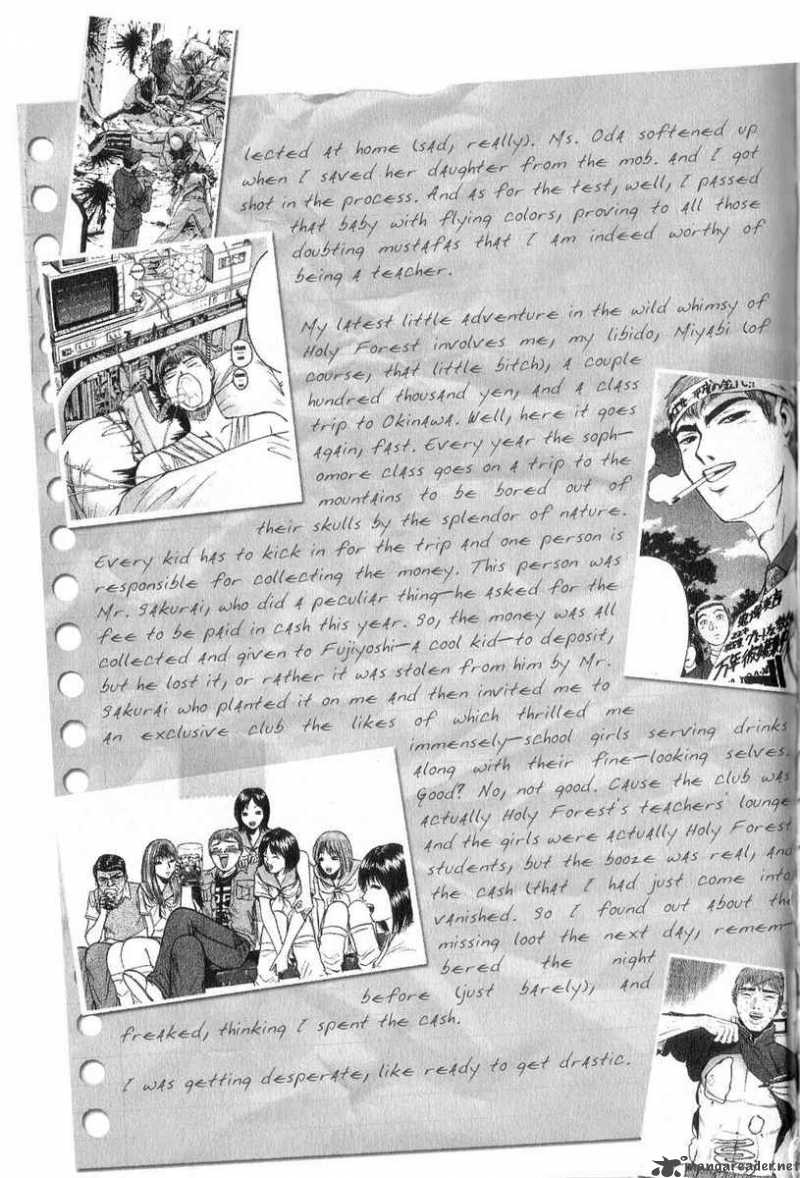 lected at home (sad, really). Ms. Oda softened up
when I saved her daughter from the mob. And I got
shot in the process. And as for the test, well, I passed
that baby with flying colors, proving to all those
doubting mustafas that I am indeed worthy of
being a teacher.
My latest little adventure in the wild whimsy of
Holy Forest involves me, my libido, Miyabi (of
course, that little bitch), a couple
hundred thousand yen, and a class
trip to Okinawa. Well, here it goes
again, fast. Every year the soph-
omore class goes on a trip to the
mountains to be bored out of
their skulls by the splendor of nature.
Every kid has to kick in for the trip and one person is
responsible for collecting the money. This person was
Mr. Sakurai, who did a peculiar thing—he asked for the
fee to be paid in cash this year. So, the money was all
collected and given to Fujiyoshi—a cool kid—to deposit,
but he lost it, or rather it was stolen from him by Mr.
Sakurai who planted it on me and then invited me to
an exclusive club the likes of which thrilled me
immensely—school girls serving drinks
along with their fine-looking selves.
Good? No, not good. Cause the club was
actually Holy Forest's teachers' lounge
and the girls were actually Holy Forest
students, but the booze was real, and
the cash (that I had just come into
vanished. So I found out about the
missing loot the next day, remem-
bered the night
before (just barely), and
freaked, thinking I spent the cash.
I was getting desperate, like ready to get drastic.
mangareader.net